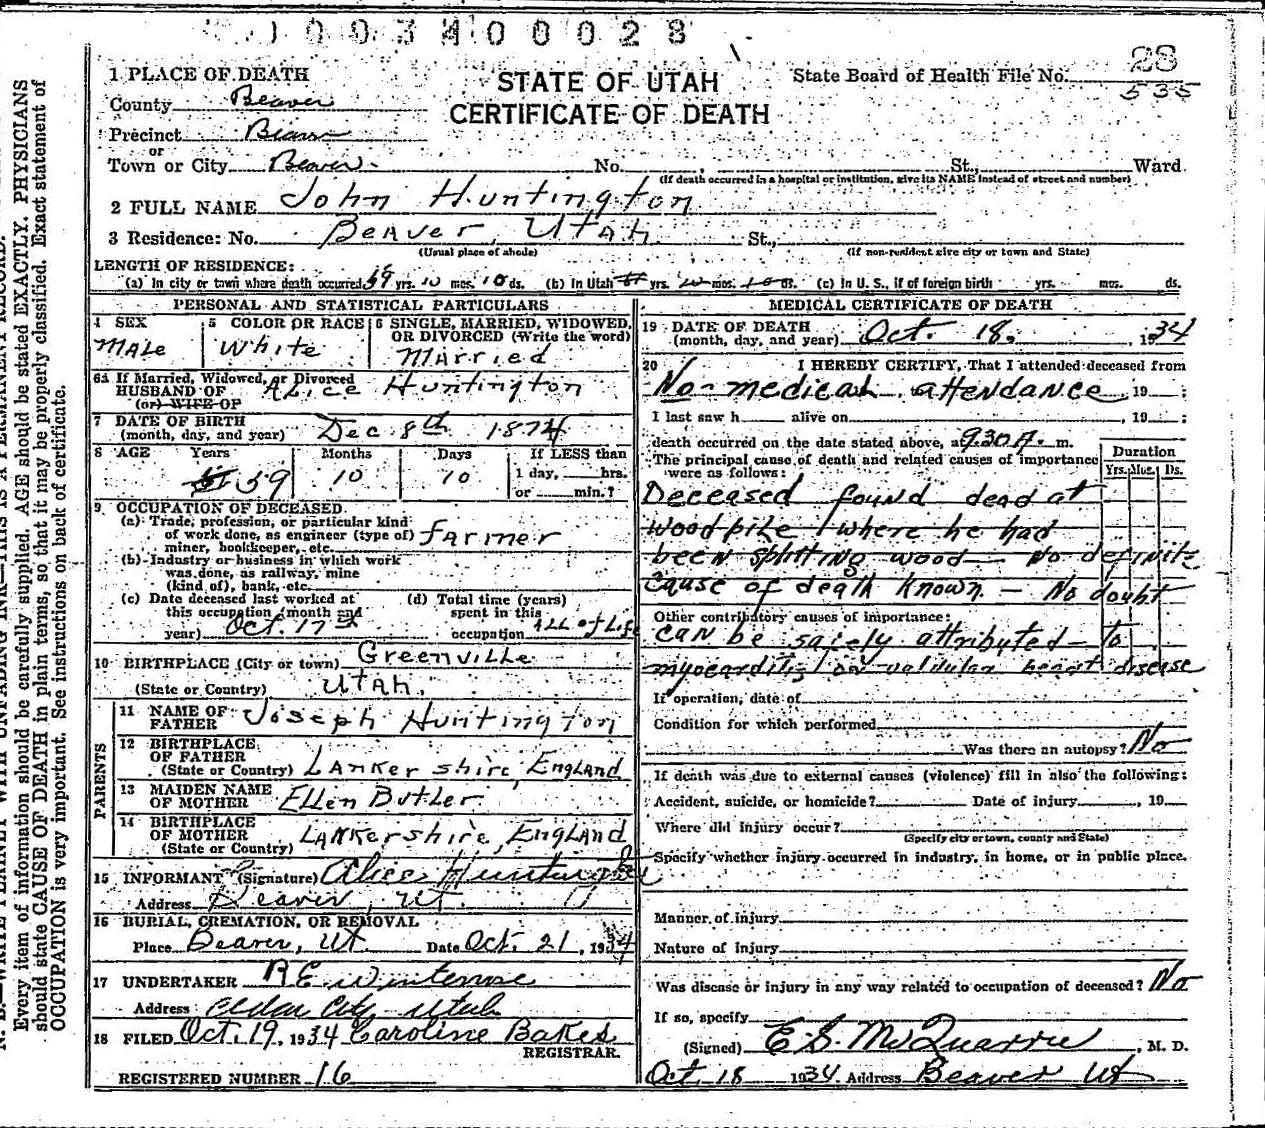 1003400028
1 PLACE OF DEATH
STATE OF UTAH
CERTIFICATE OF DEATH
State Board of Health File No. 28
535
County Beaver
Precinct Beaver
or
Town or City Beaver. No. , St., Ward
(If death occurred in a hospital or institution, give its NAME instead of street and number)
2 FULL NAME John Huntington
3 Residence: No. Beaver, Utah St.,
(Usual place of abode) (If non-resident give city or town and State)
LENGTH OF RESIDENCE:
(a) In city or town where death occurred 59 yrs. 10 mos. 10 ds. (b) In Utah yrs. 10 mos. 10 ds. (c) In U. S., if of foreign birth yrs. mos. ds.
PERSONAL AND STATISTICAL PARTICULARS
4 SEX
Male
5 COLOR OR RACE
White
6 SINGLE, MARRIED, WIDOWED, OR DIVORCED (Write the word)
Married
6a If Married, Widowed, or Divorced
HUSBAND OF Alice Huntington
(or) WIFE OF
7 DATE OF BIRTH
(month, day, and year) Dec 8th 1874
8 AGE Years Months Days If LESS than
59 10 10 1 day, hrs.
or min.?
9 OCCUPATION OF DECEASED
(a) Trade, profession, or particular kind
of work done, as engineer (type of) Farmer
miner, bookkeeper, etc.
(b) Industry or business in which work
was done, as railway, mine
(kind of), bank, etc.
(c) Date deceased last worked at
this occupation (month and
year) Oct. 17th
(d) Total time (years)
spent in this
occupation All of Life
10 BIRTHPLACE (City or town) Greenville
(State or Country) Utah.
PARENTS
11 NAME OF
FATHER Joseph Huntington
12 BIRTHPLACE
OF FATHER
(State or Country) Lankershire, England
13 MAIDEN NAME
OF MOTHER Ellen Butler
14 BIRTHPLACE
OF MOTHER
(State or Country) Lankershire, England
15 INFORMANT (Signature) Alice Huntington
Address Beaver, Ut.
16 BURIAL, CREMATION, OR REMOVAL
Place Beaver, Ut. Date Oct. 21, 1934
17 UNDERTAKER R E Winterrose
Address Cedar City Utah
18 FILED Oct. 19, 1934 Caroline Bakes
REGISTRAR.
REGISTERED NUMBER 16
MEDICAL CERTIFICATE OF DEATH
19 DATE OF DEATH
(month, day, and year) Oct. 18, , 1934
20 I HEREBY CERTIFY, That I attended deceased from
No medical attendance, 19 ;
I last saw h alive on , 19 ;
death occurred on the date stated above, at 9.30 A. m.
The principal cause of death and related causes of importance
were as follows:
Duration
Yrs. Mos. Ds.
Deceased found dead at
woodpile where he had
been splitting wood — No definite
cause of death known — No doubt
Other contributory causes of importance:
can be safely attributed to
myocarditis or valvular heart disease
If operation, date of
Condition for which performed
Was there an autopsy? No
If death was due to external causes (violence) fill in also the following:
Accident, suicide, or homicide? Date of injury , 19
Where did injury occur?
(Specify city or town, county and State)
Specify whether injury occurred in industry, in home, or in public place.
Manner of injury
Nature of injury
Was disease or injury in any way related to occupation of deceased? No
If so, specify
(Signed) E S. McQuarrie, M. D.
Oct 18 1934 Address Beaver Ut
N. B.—WRITE PLAINLY WITH UNFADING INK—THIS IS A PERMANENT RECORD.
Every item of information should be carefully supplied. AGE should be stated EXACTLY. PHYSICIANS
should state CAUSE OF DEATH in plain terms, so that it may be properly classified. Exact statement of
OCCUPATION is very important. See instructions on back of certificate.